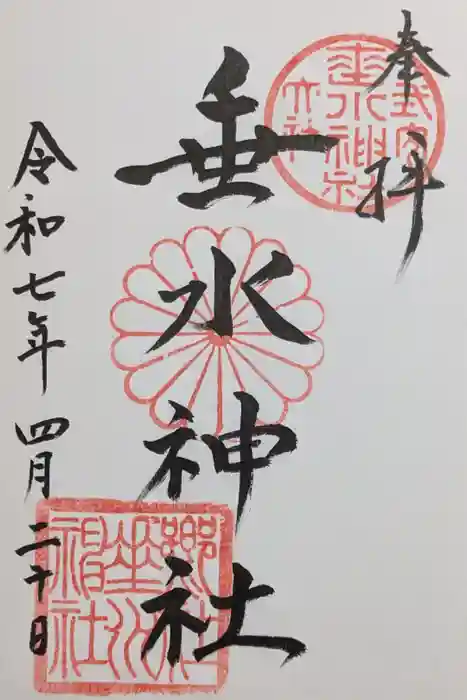 奉拝
垂水神社
令和七年四月二十日
式内
垂水神社
大社